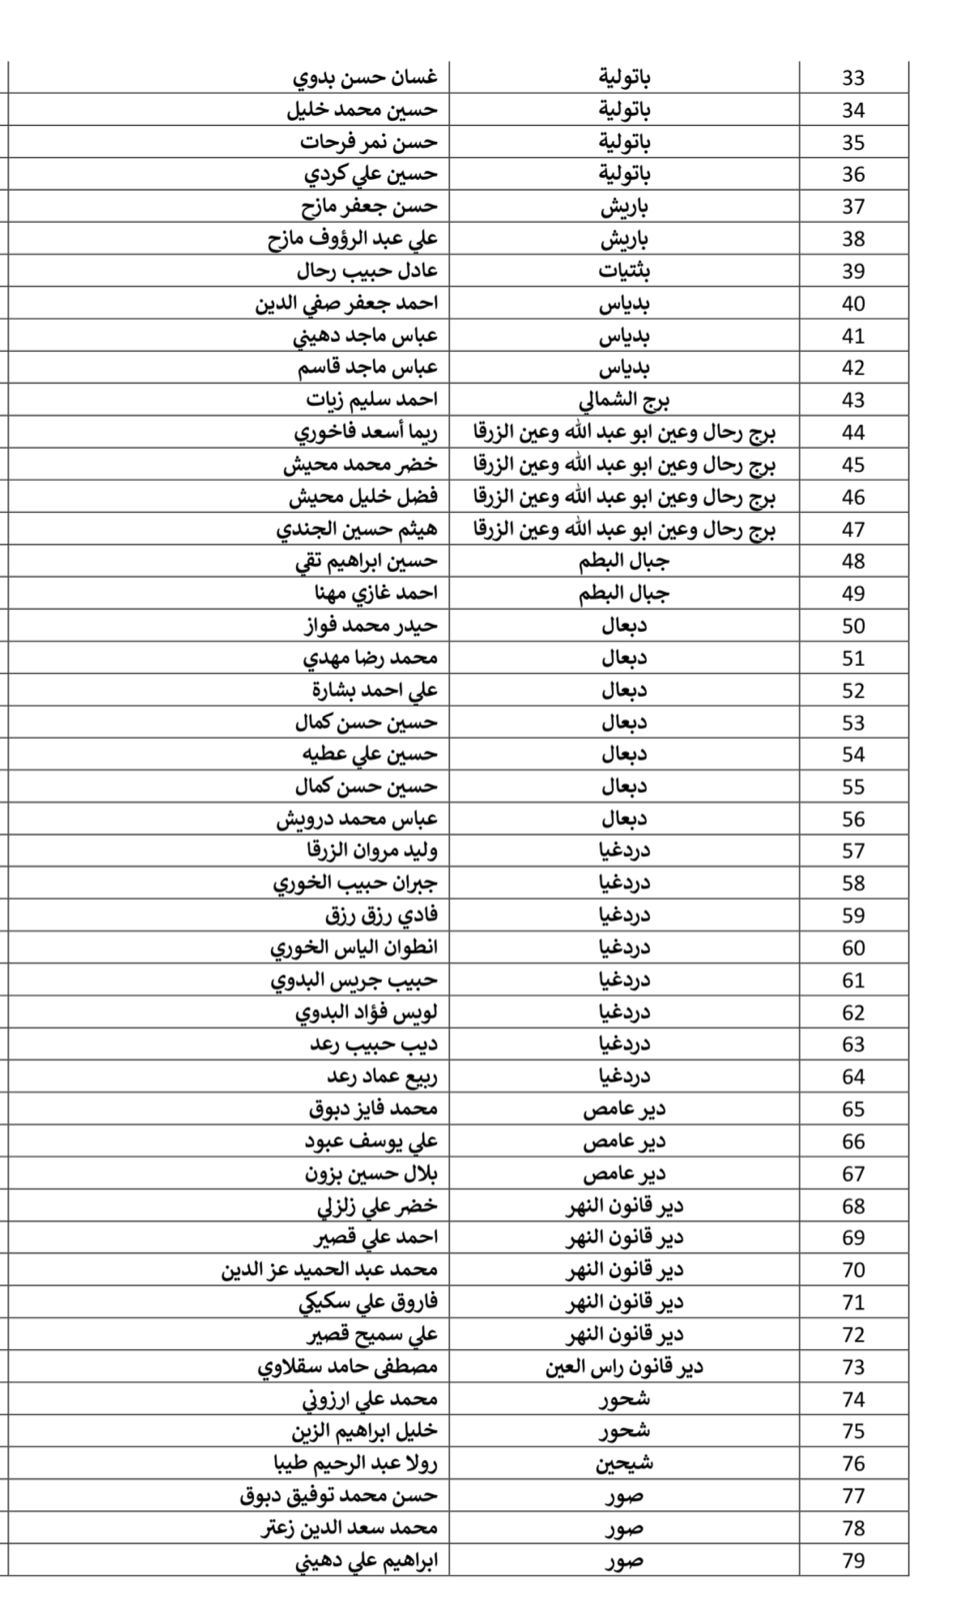 33 باتولية غسان حسن بدوي
34 باتولية حسين محمد خليل
35 باتولية حسن نمر فرحات
36 باتولية حسين علي كردي
37 باريش حسن جعفر مازح
38 باريش علي عبد الرؤوف مازح
39 بثتيات عادل حبيب رحال
40 بدياس احمد جعفر صفي الدين
41 بدياس عباس ماجد دهيني
42 بدياس عباس ماجد قاسم
43 برج الشمالي احمد سليم زيات
44 برج رحال وعين ابو عبد الله وعين الزرقا ريما أسعد فاخوري
45 برج رحال وعين ابو عبد الله وعين الزرقا خضر محمد محيش
46 برج رحال وعين ابو عبد الله وعين الزرقا فضل خليل محيش
47 برج رحال وعين ابو عبد الله وعين الزرقا هيثم حسين الجندي
48 جبال البطم حسين ابراهيم تقي
49 جبال البطم احمد غازي مهنا
50 دبعال حيدر محمد فواز
51 دبعال محمد رضا مهدي
52 دبعال علي احمد بشارة
53 دبعال حسين حسن كمال
54 دبعال حسين علي عطيه
55 دبعال حسين حسن كمال
56 دبعال عباس محمد درويش
57 دردغيا وليد مروان الزرقا
58 دردغيا جبران حبيب الخوري
59 دردغيا فادي رزق رزق
60 دردغيا انطوان الياس الخوري
61 دردغيا حبيب جريس البدوي
62 دردغيا لويس فؤاد البدوي
63 دردغيا ديب حبيب رعد
64 دردغيا ربيع عماد رعد
65 دير عامص محمد فايز دبوق
66 دير عامص علي يوسف عبود
67 دير عامص بلال حسين بزون
68 دير قانون النهر خضر علي زلزلي
69 دير قانون النهر احمد علي قصير
70 دير قانون النهر محمد عبد الحميد عز الدين
71 دير قانون النهر فاروق علي سكيكي
72 دير قانون النهر علي سميح قصير
73 دير قانون راس العين مصطفى حامد سقلاوي
74 شحور محمد علي ارزوني
75 شحور خليل ابراهيم الزين
76 شيحين رولا عبد الرحيم طيبا
77 صور حسن محمد توفيق دبوق
78 صور محمد سعد الدين زعتر
79 صور ابراهيم علي دهيني